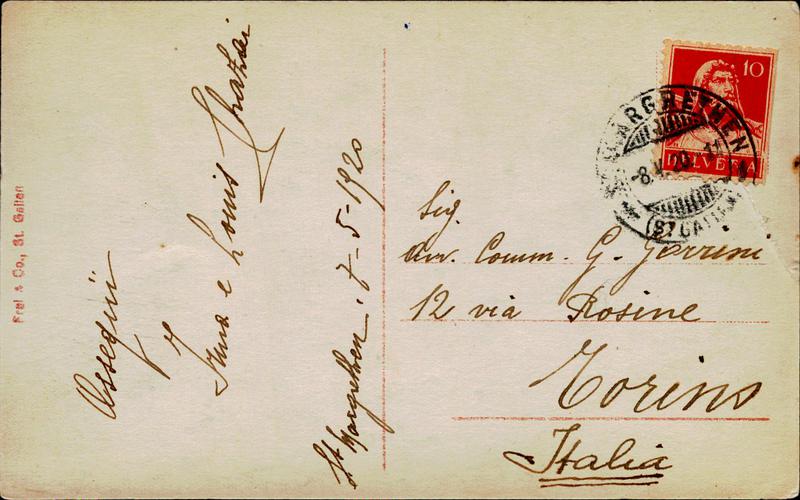 Ossequii
Irma e Louis
St Margrethen: 7-5-1920
Frei & Co., St. Gallen
10
HELVETIA
ST. MARGRETHEN
8.V.20.
(ST. GALLEN)
Sig.
avv. Comm. G. Gorrini
12 via Rosine
Torino
Italia